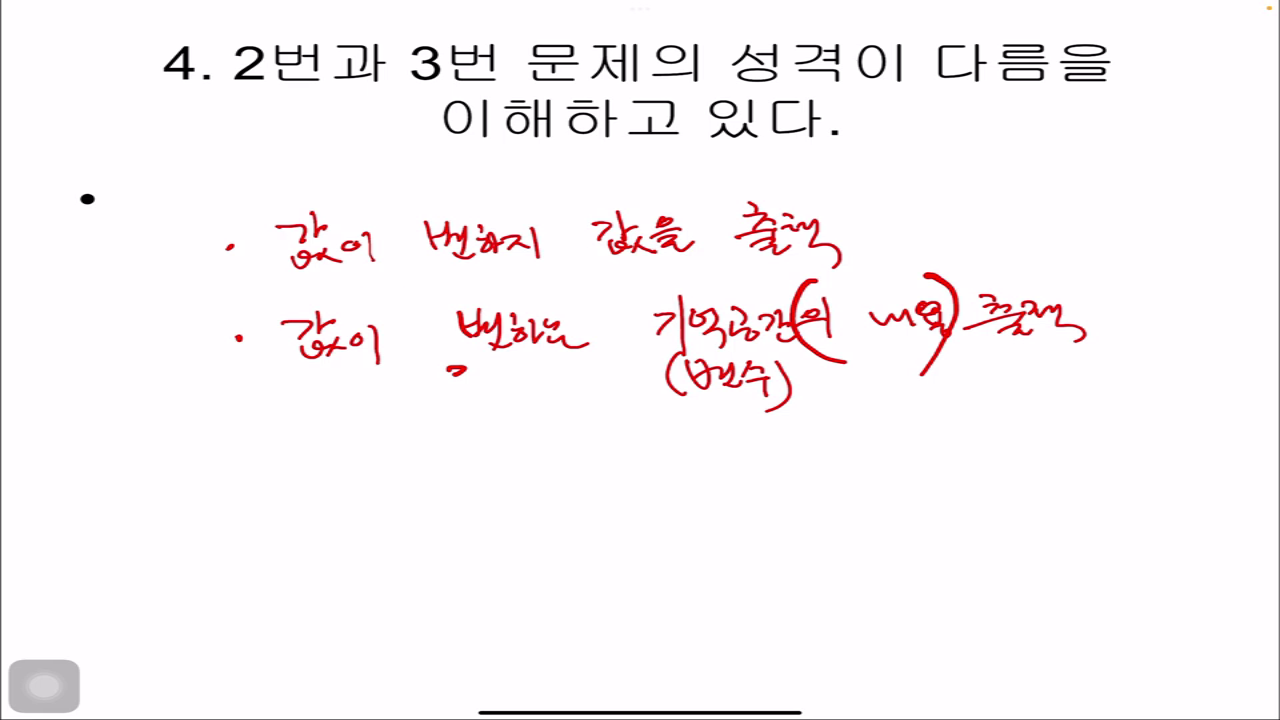 4. 2번과 3번 문제의 성격이 다름을
이해하고 있다.
• 값이 변하지 값을 출력
• 값이 변하는 기억공간(의 내열) 출력
(변수)